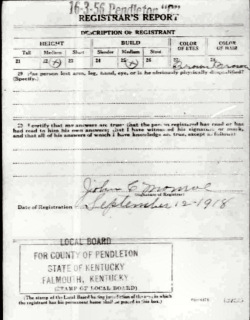 16-3-56 Pendleton "C"
REGISTRAR'S REPORT
DESCRIPTION OF REGISTRANT
HEIGHT BUILD COLOR OF EYES COLOR OF HAIR
Tall Medium Short Slender Medium Stout
21 22 23 24 25 26 27 28
Brown Brown
29 Has person lost arm, leg, hand, eye, or is he obviously physically disqualified?
(Specify.)
30 I certify that my answers are true; that the person registered has read or has
had read to him his own answers; that I have witnessed his signature or mark,
and that all of his answers of which I have knowledge are true, except as follows:
John C Monroe
Date of Registration September 12-1918
LOCAL BOARD
FOR COUNTY OF PENDLETON
STATE OF KENTUCKY
FALMOUTH, KENTUCKY
(STAMP OF LOCAL BOARD)
(The stamp of the Local Board having jurisdiction of the area in which
the registrant has his permanent home shall be placed in this box.)